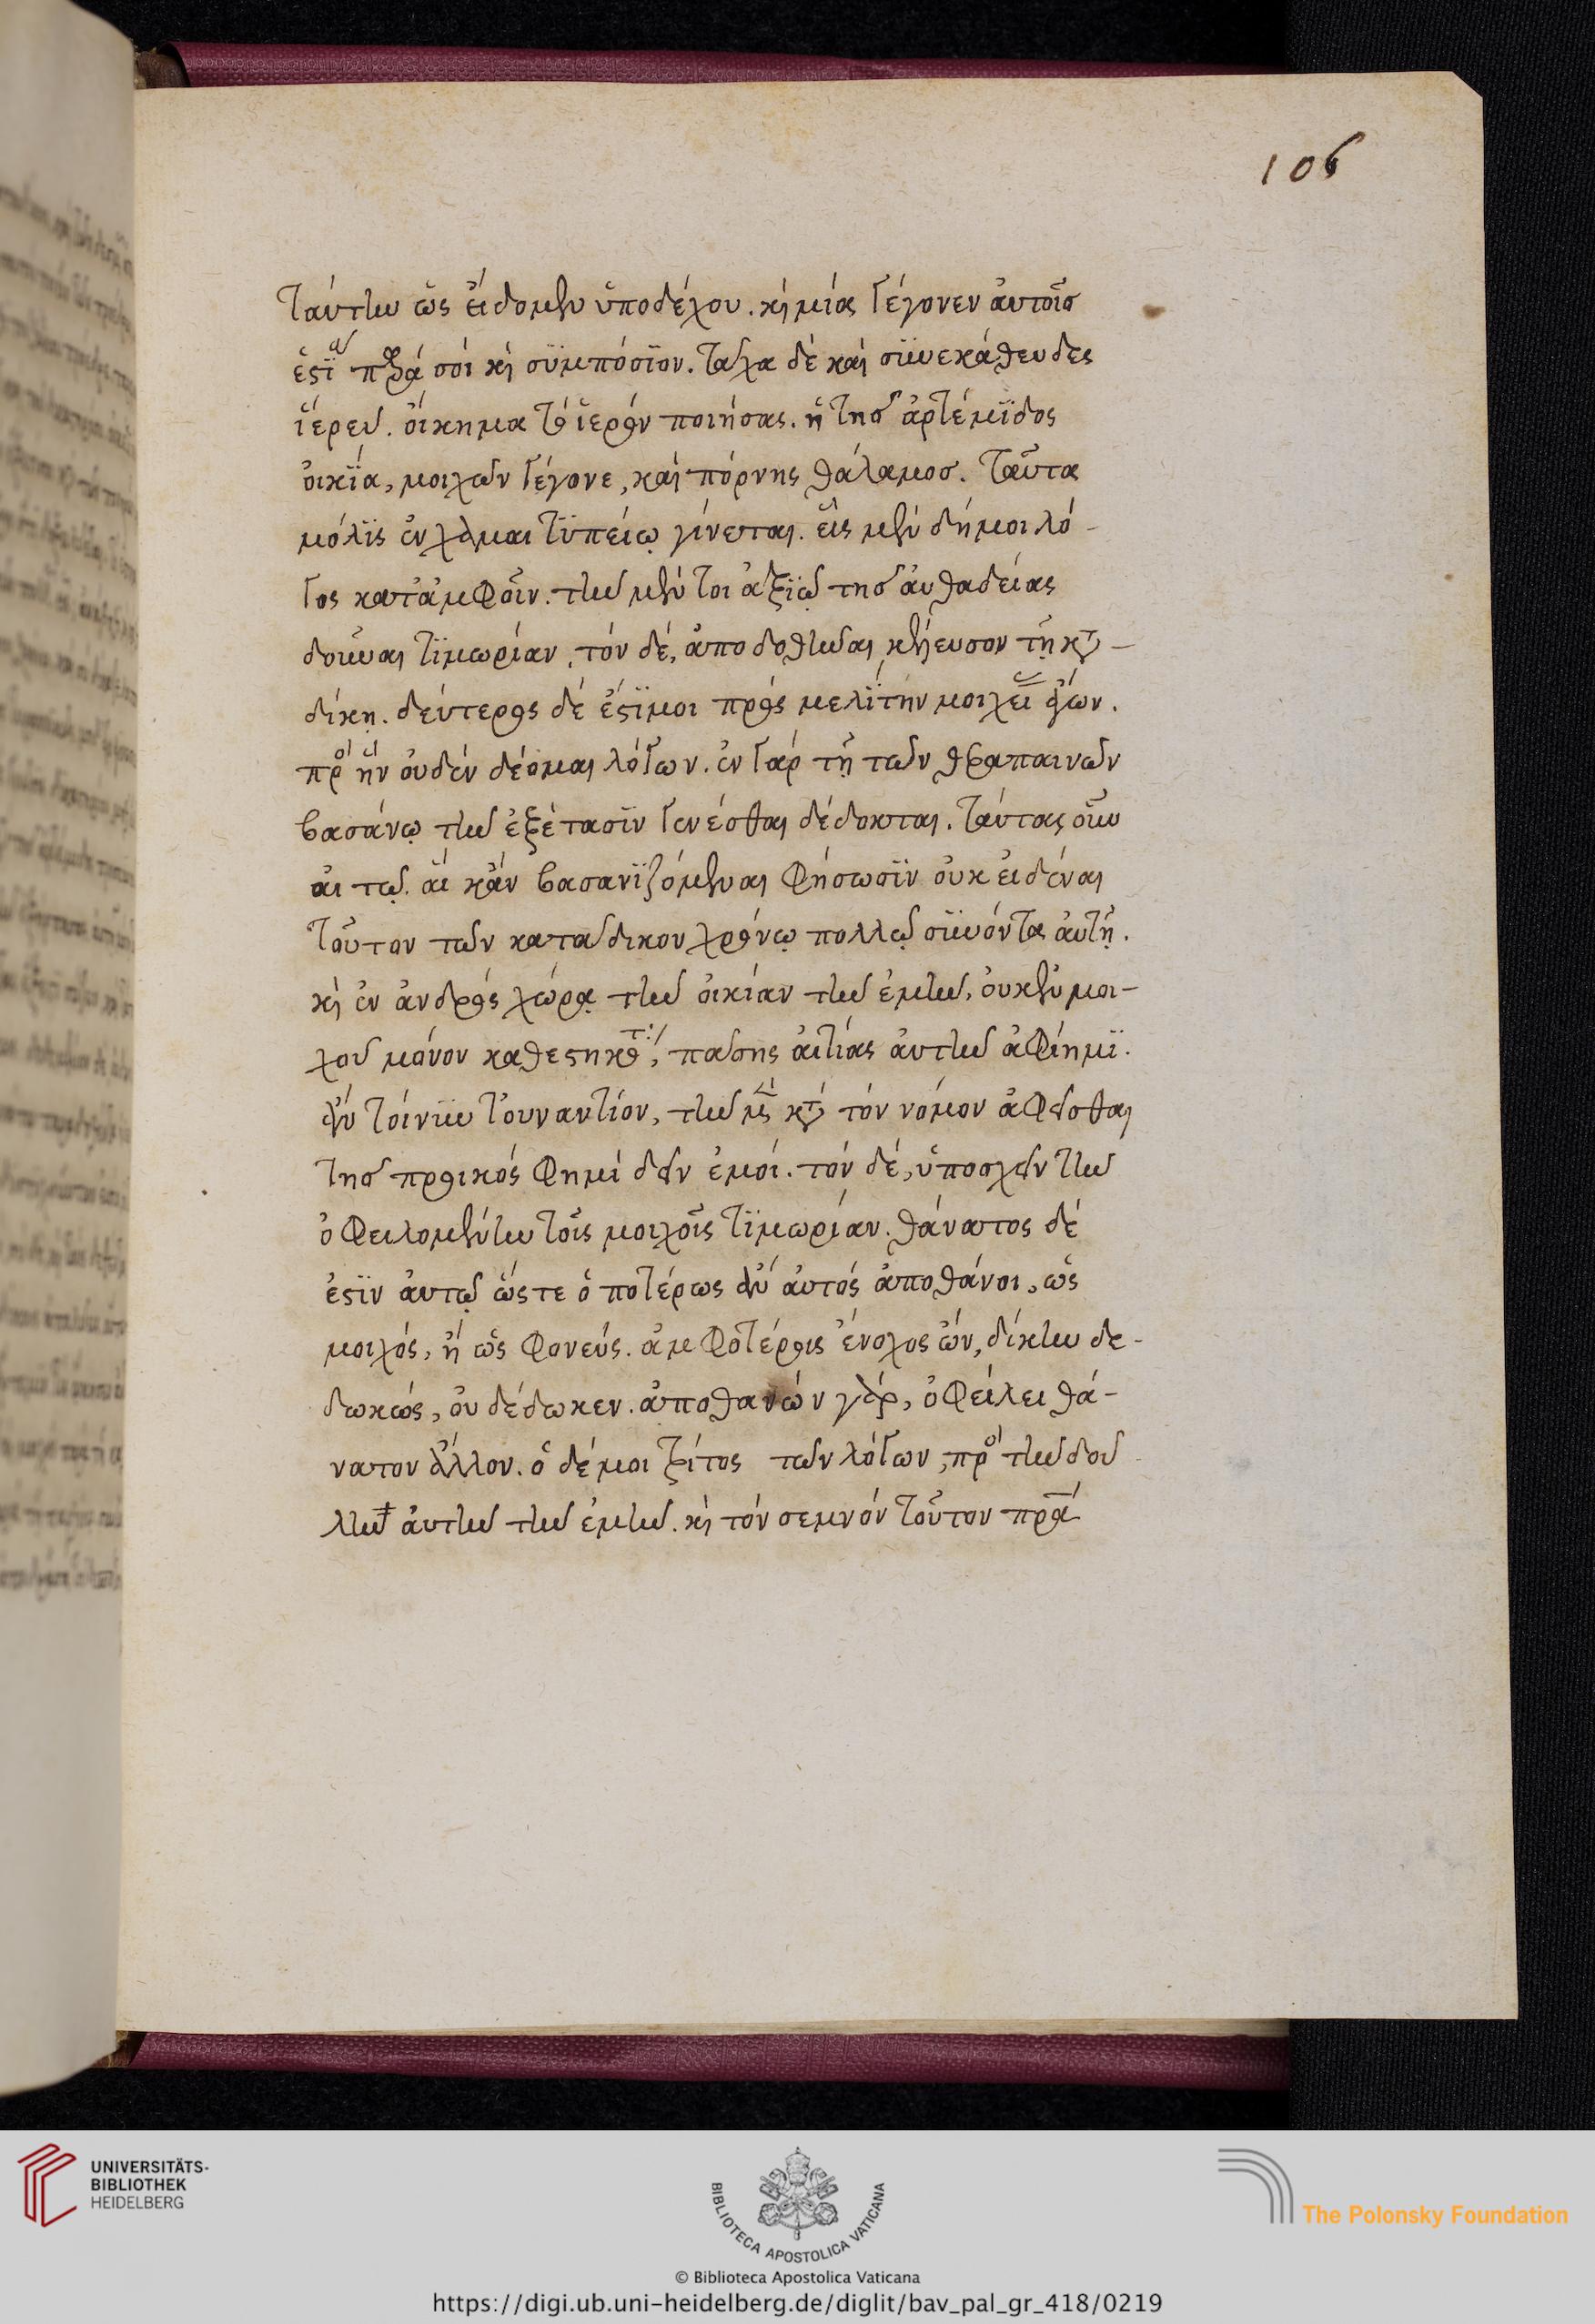 106
ταύτην ὡς εἴδομεν ὑποδέχου. καὶ μία γέγονεν αὐτοῖς
ἑστία παρά σοι καὶ συμπόσιον. τάχα δὲ καὶ συνεκάθευδες
ἱερεῦ. οἴκημα τὸ ἱερὸν ποιήσας. ἡ τῆς ἀρτέμιδος
οἰκία, μοιχῶν γέγονε, καὶ πόρνης θάλαμος. ταῦτα
μόλις ἐν χαμαιτυπείῳ γίνεται. εἷς μὲν δή μοι λό-
γος κατ' ἀμφοῖν. τὴν μέντοι ἀξιῶ τῆς αὐθαδείας
δοῦναι τιμωρίαν, τὸν δέ, ἀποδοθῆναι κέλευσον τῇ κατα-
δίκῃ. δεύτερος δέ ἐστί μοι πρὸς μελίτην μοιχείας ἀγών.
πρὸς ἣν οὐδὲν δέομαι λόγων. ἐν γὰρ τῇ τῶν θεραπαινῶν
βασάνῳ τὴν ἐξέτασιν γενέσθαι δέδοκται. ταύτας οὖν
αἰτῶ. αἳ κἂν βασανιζόμεναι φήσωσιν οὐκ εἰδέναι
τοῦτον τῶν καταδικον χρόνῳ πολλῷ συνόντα αὐτῇ.
καὶ ἐν ἀνδρὸς χώρᾳ τὴν οἰκίαν τὴν ἐμὴν, οὐκ ἐν μοι-
χοῦ μόνον καθεστηκότα, πάσης αἰτίας αὐτὴν ἀφίημι.
ἂν τοίνυν τοὐναντίον, τὴν μὲν κατὰ τὸν νόμον ἀφεῖσθαι
τῆς προικός φημὶ δεῖν ἐμοί. τὸν δέ, ὑποσχεῖν τὴν
ὀφειλομένην τοῖς μοιχοῖς τιμωρίαν. θάνατος δέ
ἐστιν αὐτῷ ὥστε ὁποτέρως ἂν αὐτὸς ἀποθάνοι, ὡς
μοιχός, ἢ ὡς φονεύς. ἀμφοτέροις ἔνοχος ὤν, δίκην δε-
δωκώς, οὐ δέδωκεν. ἀποθανὼν γὰρ, ὀφείλει θά-
νατον ἄλλον. ὁ δέ μοι τρίτος τῶν λόγων, πρὸς τὴν δού
λην αὐτὴν τὴν ἐμήν. καὶ τὸν σεμνὸν τοῦτον πρα
UNIVERSITÄTS-
BIBLIOTHEK
HEIDELBERG
BIBLIOTECA APOSTOLICA VATICANA
The Polonsky Foundation
© Biblioteca Apostolica Vaticana
https://digi.ub.uni-heidelberg.de/diglit/bav_pal_gr_418/0219